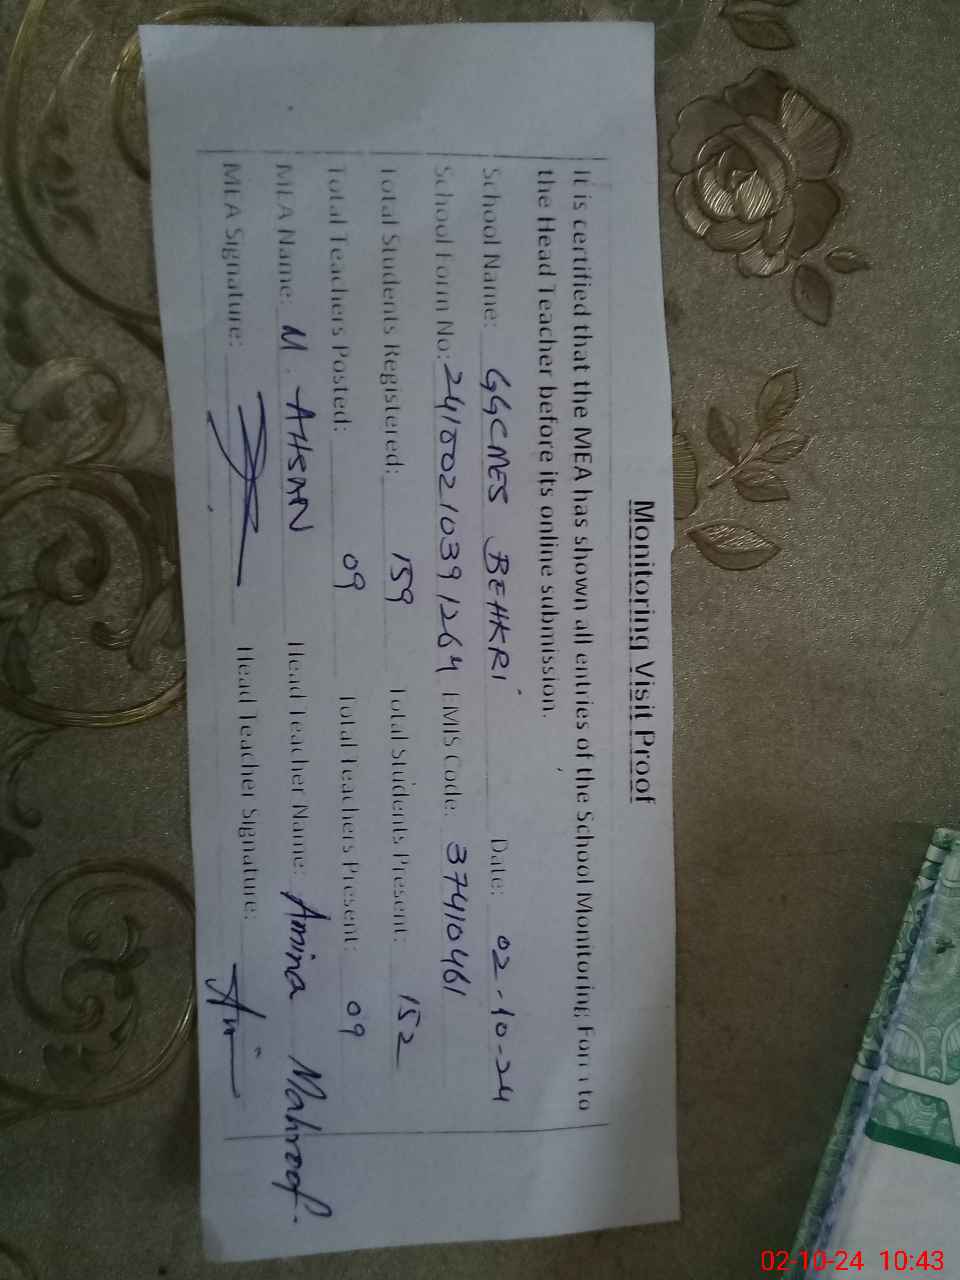 Monitoring Visit Proof
It is certified that the MEA has shown all entries of the School Monitoring Form to
the Head Teacher before its online submission.
School Name: GGCMES BEHKRI Date: 02-10-24
School Form No: 2410021039 1264 EMIS Code: 37410461
Total Students Registered: 159 Total Students Present: 152
Total Teachers Posted: 09 Total Teachers Present: 09
MEA Name: M. AHSAN Head Teacher Name: Amina Mahroof.
MEA Signature: Head Teacher Signature:
02-10-24 10:43